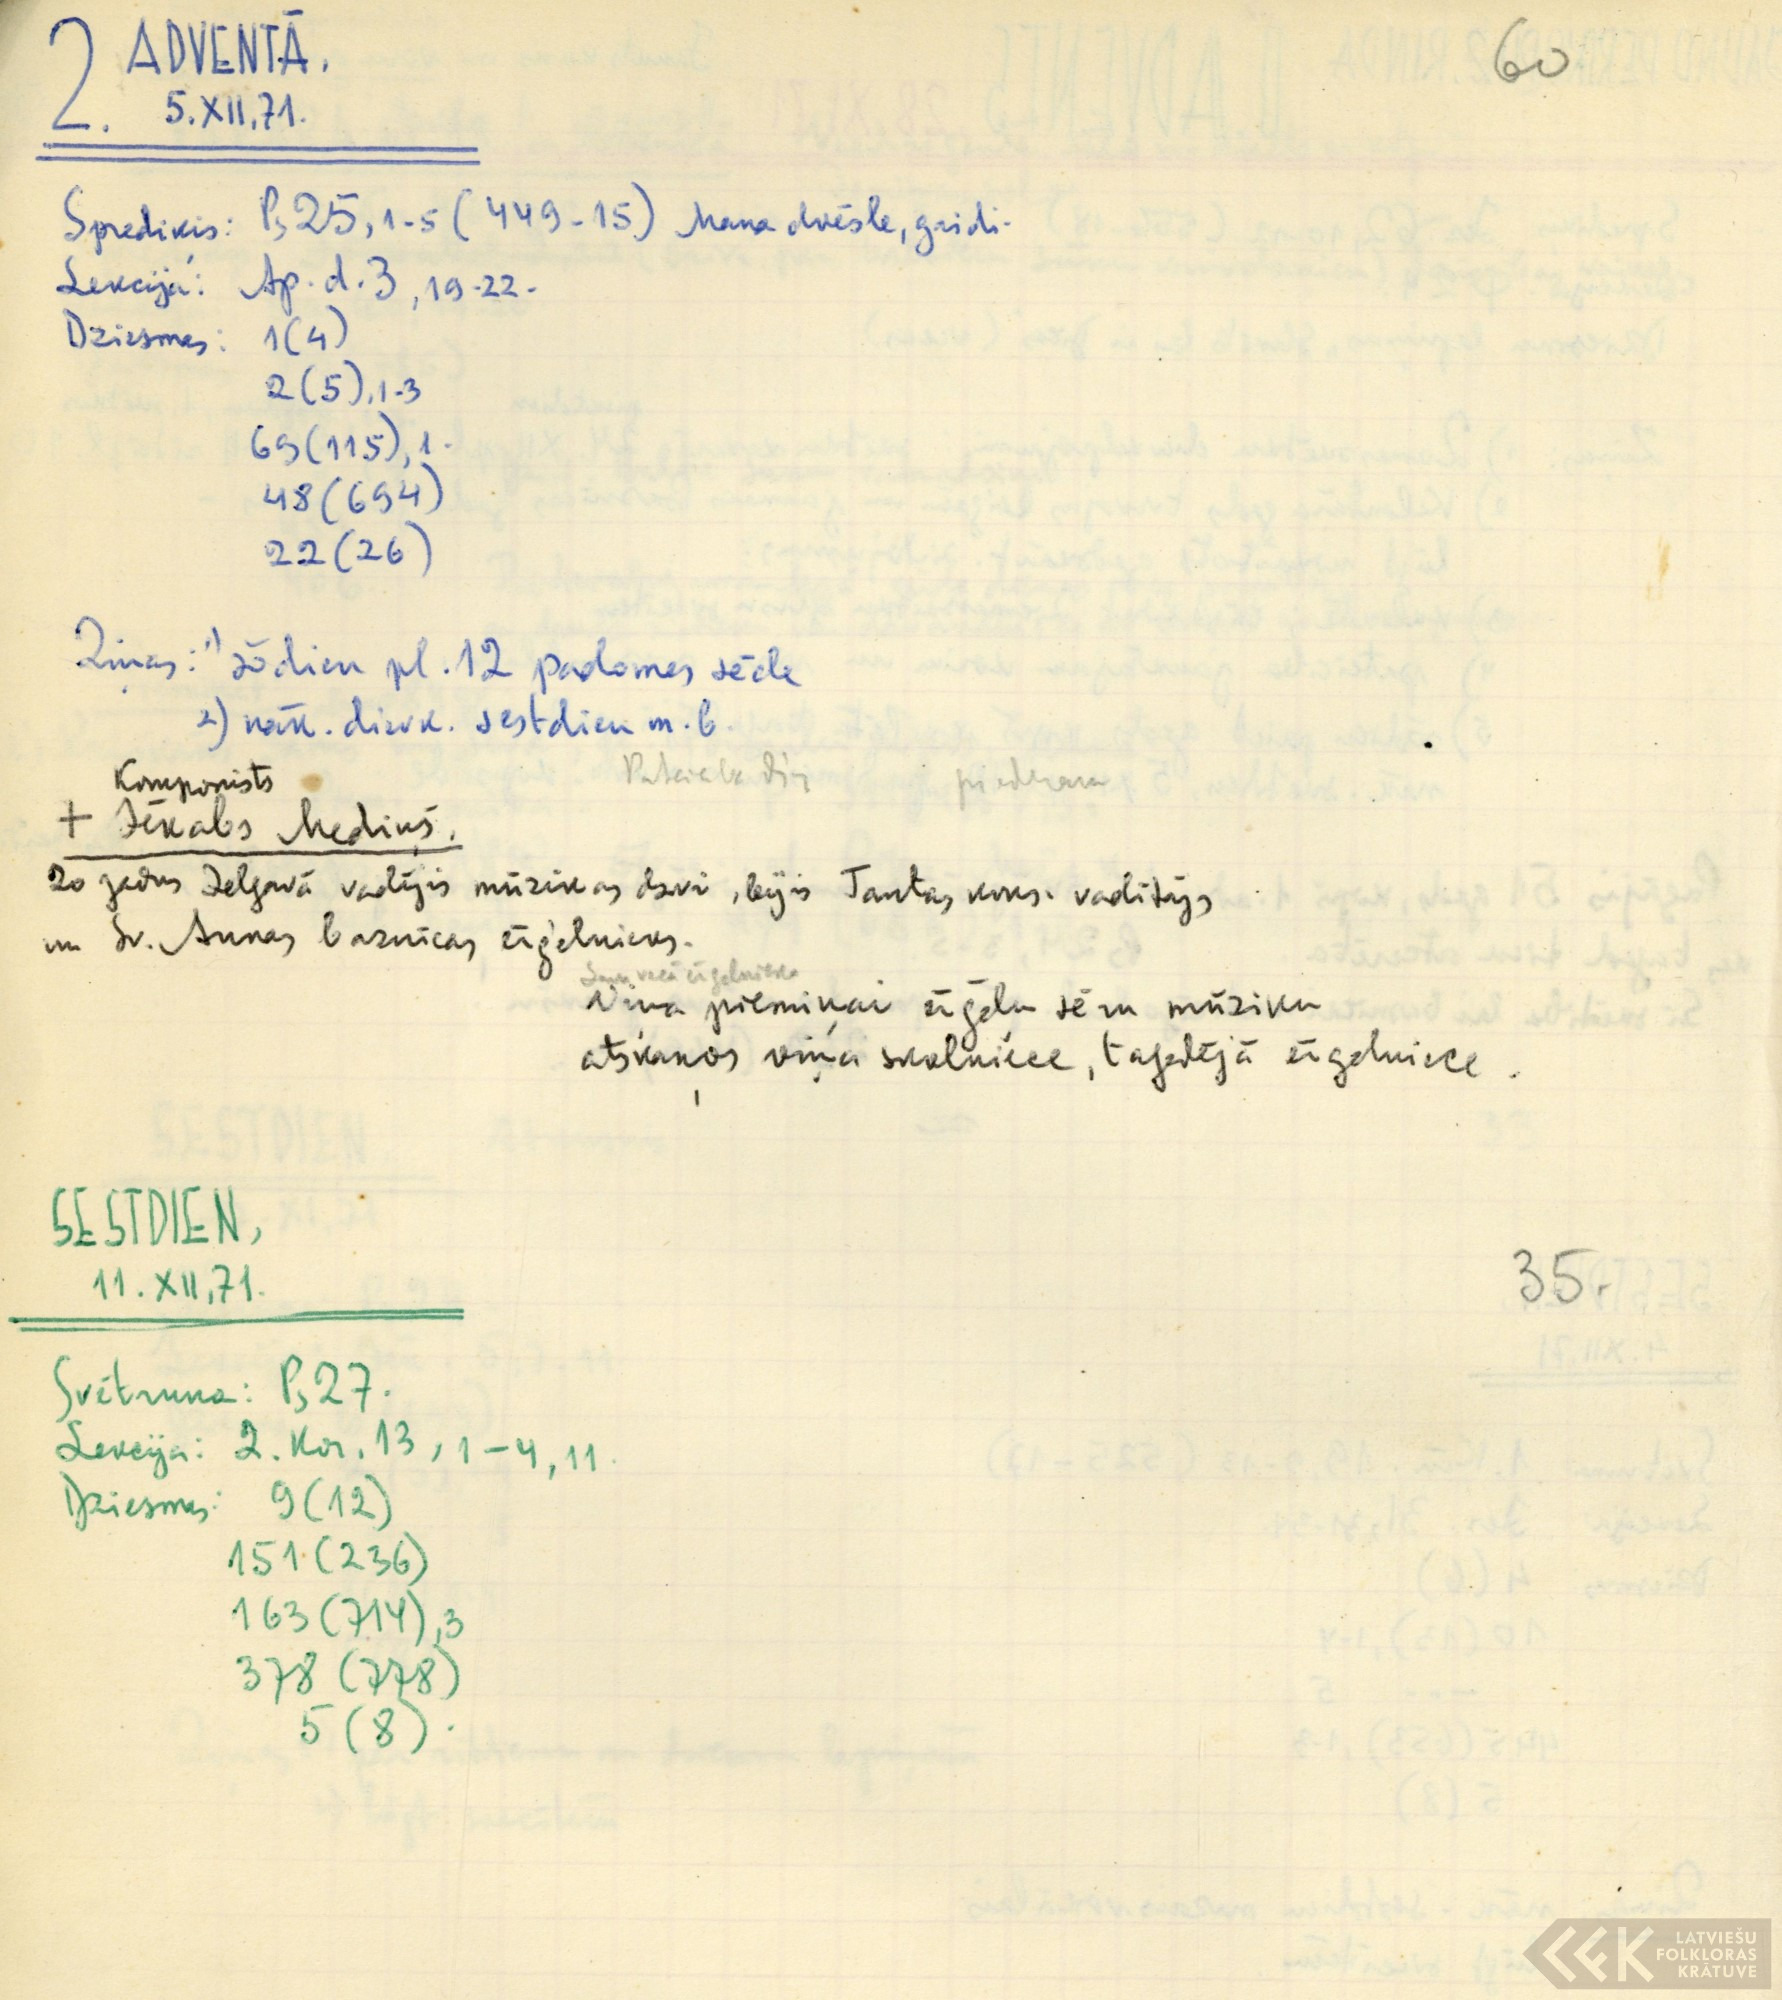 2. ADVENTĀ. 60
5.XII,71.
Spredikis: Ps 25, 1-5 (449-15) Mana dvēsle, gaidi.
Lekcija: Ap. d. 3, 19-22.
Dziesmas: 1(4)
2(5), 1-3
69(115), 1.
48(694)
22(26)
Ziņas: 1) šodien pl. 12 padomes sēde
2) nāk. dievk. sestdien m. b.
Pateicība Dir piederam
Komponists
+ Jēkabs Mediņš.
20 gadus Jelgavā vadījis mūzikas dzīvi, bijis Tautas kons. vadītājs
un Sv. Annas baznīcas ērģelnieks.
Sava vecā ērģelnieka
Viņa piemiņai ērģeļu sēru mūziku
atskaņos viņa skolniece, tagadējā ērģelniece.
SESTDIEN,
11.XII,71. 35.
Svētruna: Ps 27.
Lekcija: 2. Kor. 13, 1-4, 11.
Dziesmas: 9(12)
151(236)
163(714), 3
378(778)
5(8).
LATVIEŠU
FOLKLORAS
KRĀTUVE